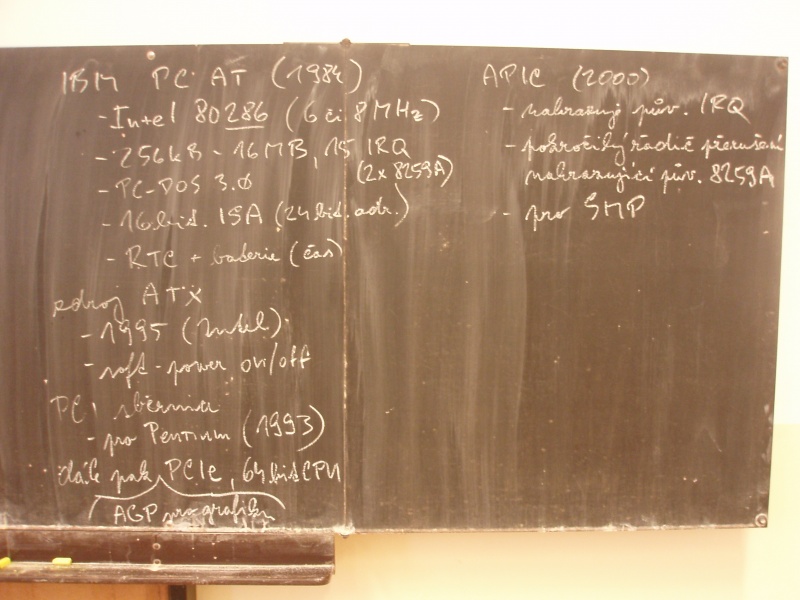 IBM PC AT (1984)
- Intel 80286 (6 či 8 MHz)
- 256kB - 16MB, 15 IRQ
(2x 8259A)
- PC-DOS 3.0
- 16bit. ISA (24bit. adr.)
- RTC + baterie (čas)
zdroj ATX
- 1995 (Intel)
- soft-power on/off
PCI sběrnice
- pro Pentium (1993)
dále pak PCIe, 64bit CPU
(AGP pro grafiku)
APIC (2000)
- nahrazuje pův. IRQ
- pokročilý řadič přerušení
nahrazující pův. 8259A
- pro SMP